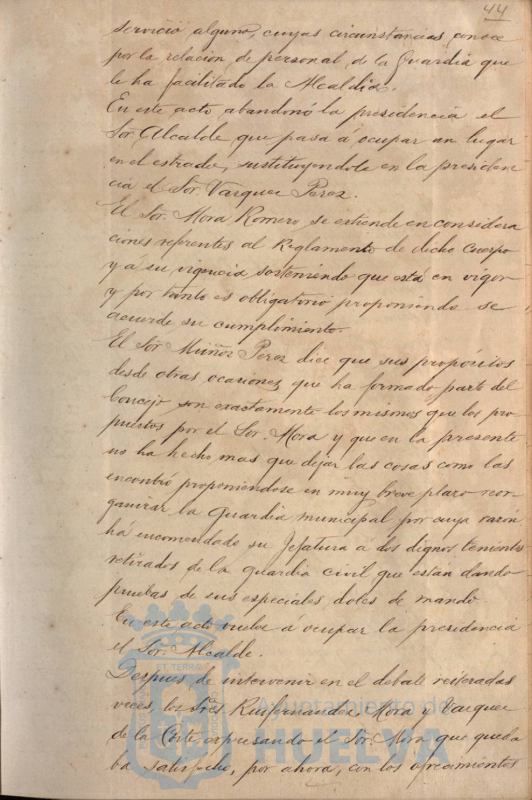 44
servicio alguno, cuyas circunstancias conoce
por la relacion de personal de la Guardia que
le ha facilitado la Alcaldia.
En este acto abandonó la presidencia el
Sor. Alcalde que pasa á ocupar un lugar
en el estrado, sustituyendole en la presiden
cia el Sor. Vazquez Perez.
El Sor. Mora Romero, se estiende en considera
ciones referentes al Reglamento de dicho Cuerpo
y á su urgencia sosteniendo que está en vigor
y por tanto es obligatorio proponiendo se
acuerde su cumplimiento.
El Sor. Muñoz Perez dice que sus propósitos
desde otras ocasiones que ha formado parte del
Concejo son exactamente los mismos que los pro
puestos por el Sor. Mora y que en la presente
no ha hecho mas que dejar las cosas como las
encontró proponiendose en muy breve plazo reor
ganizar la Guardia municipal por cuya razón
há encomendado su Jefatura á los dignos tenientes
retirados de la guardia civil que están dando
pruebas de sus especiales dotes de mando.
En este acto vuelve á ocupar la presidencia
el Sor. Alcalde.
Despues de intervenir en el debate reiteradas
veces, los Sres. Ruifernandez, Mora y Vazquez
de la Corte, expresando el Sor. Mora que queda
ba satisfecho, por ahora, con los ofrecimientos
Ayuntamiento de
HUELVA